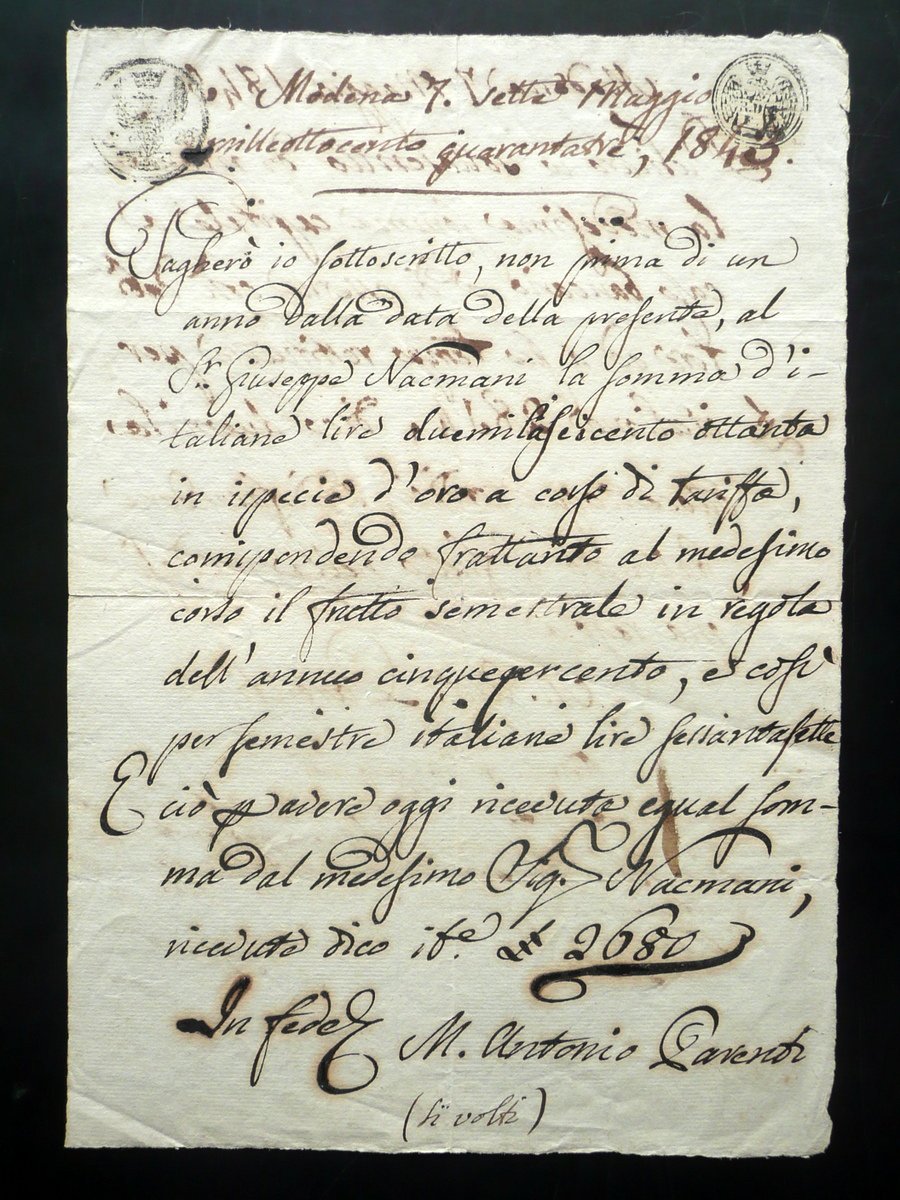 Modena 7. Sette Maggio
milleottocento quarantatrè, 1843.
Pagherò io sottoscritto, non prima di un
anno dalla data della presente, al
Sr. Giuseppe Nacmani la somma d'i-
taliane lire duemilaseicento ottanta
in ispecie d'oro a corso di tariffa,
corrispondendo frattanto al medesimo
corso il frutto semestrale in regola
dell'annuo cinquepercento, e così
per semestre italiane lire sessantasette
E ciò p avere oggi ricevuta egual som-
ma dal medesimo Sig. Nacmani,
ricevute dico it.e 2680
In fede
M. Antonio Parenti
(si volti)